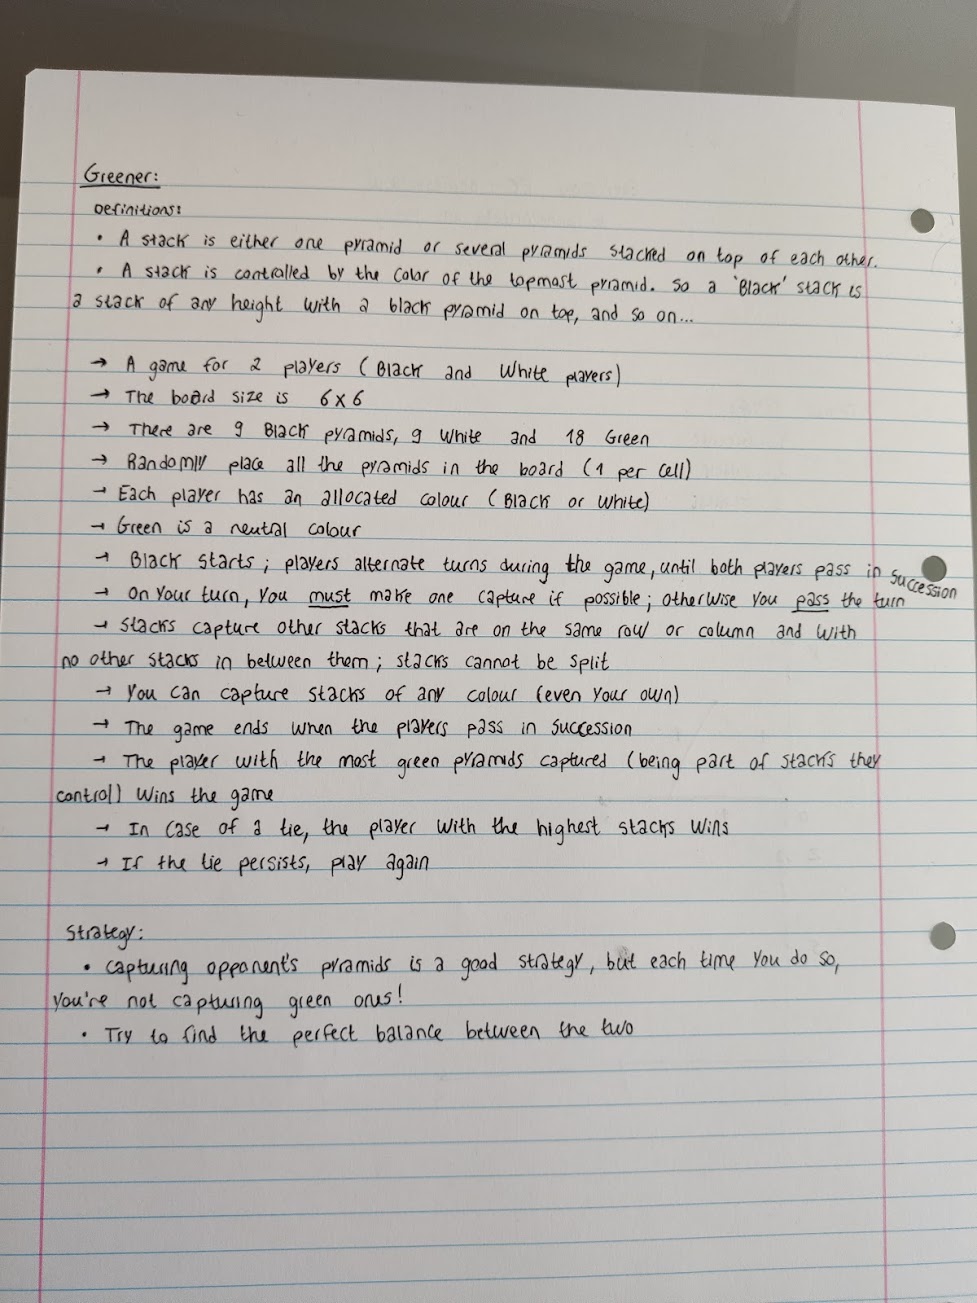 Greener:
Definitions:
• A stack is either one pyramid or several pyramids stacked on top of each other.
• A stack is controlled by the color of the topmost pyramid. So a 'Black' stack is
a stack of any height with a black pyramid on top, and so on...
→ A game for 2 players (Black and White players)
→ The board size is 6x6
→ There are 9 Black pyramids, 9 White and 18 Green
→ Randomly place all the pyramids in the board (1 per cell)
→ Each player has an allocated colour (Black or White)
→ Green is a neutral colour
→ Black starts; players alternate turns during the game, until both players pass in succession
→ On your turn, you must make one capture if possible; otherwise you pass the turn
→ Stacks capture other stacks that are on the same row or column and with
no other stacks in between them; stacks cannot be split
→ You can capture stacks of any colour (even your own)
→ The game ends when the players pass in succession
→ The player with the most green pyramids captured (being part of stacks they
control) wins the game
→ In case of a tie, the player with the highest stacks wins
→ If the tie persists, play again
Strategy:
• Capturing opponent's pyramids is a good strategy, but each time you do so,
you're not capturing green ones!
• Try to find the perfect balance between the two